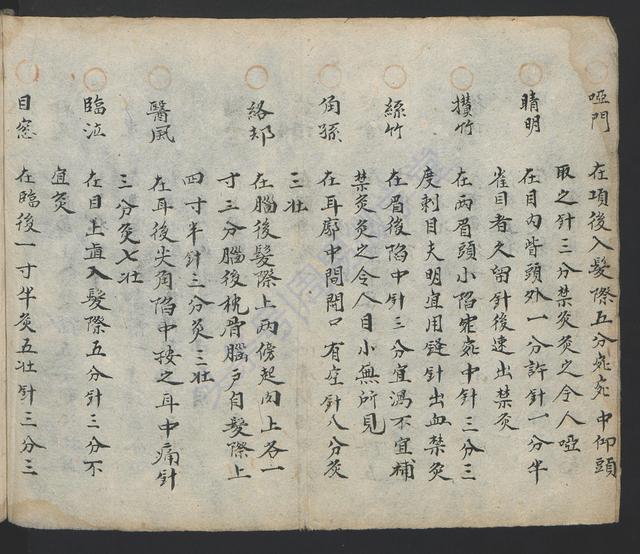 啞門 在項後入髮際五分宛宛中仰頭
取之針三分禁灸灸之令人啞
睛明 在目內眥頭外一分許針一分半
雀目者久留針後速出禁灸
攢竹 在兩眉頭小陷宛宛中針三分三
度刺目大明宜用鋒針出血禁灸
絲竹 在眉後陷中針三分宜瀉不宜補
禁灸灸之令人目小無所見
角孫 在耳廓中間開口有空針八分灸
三壯
絡却 在腦後髮際上兩傍起肉上各一
寸三分腦後枕骨腦戶自髮際上
四寸半針三分灸三壯
醫風 在耳後尖角陷中按之耳中痛針
三分灸七壯
臨泣 在目上直入髮際五分針三分不
宜灸
目窓 在臨後一寸半灸五壯針三分三